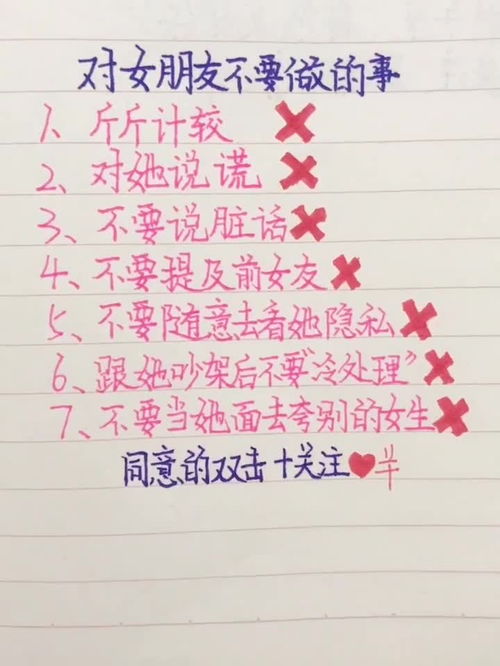 对女朋友不要做的事
1、斤斤计较 ❌
2、对她说谎 ❌
3、不要说脏话❌
4、不要提及前女友❌
5、不要随意去看她隐私❌
6、跟她吵架后不要“冷处理”❌
7、不要当她面去夸别的女生❌
同意的双击+关注❤